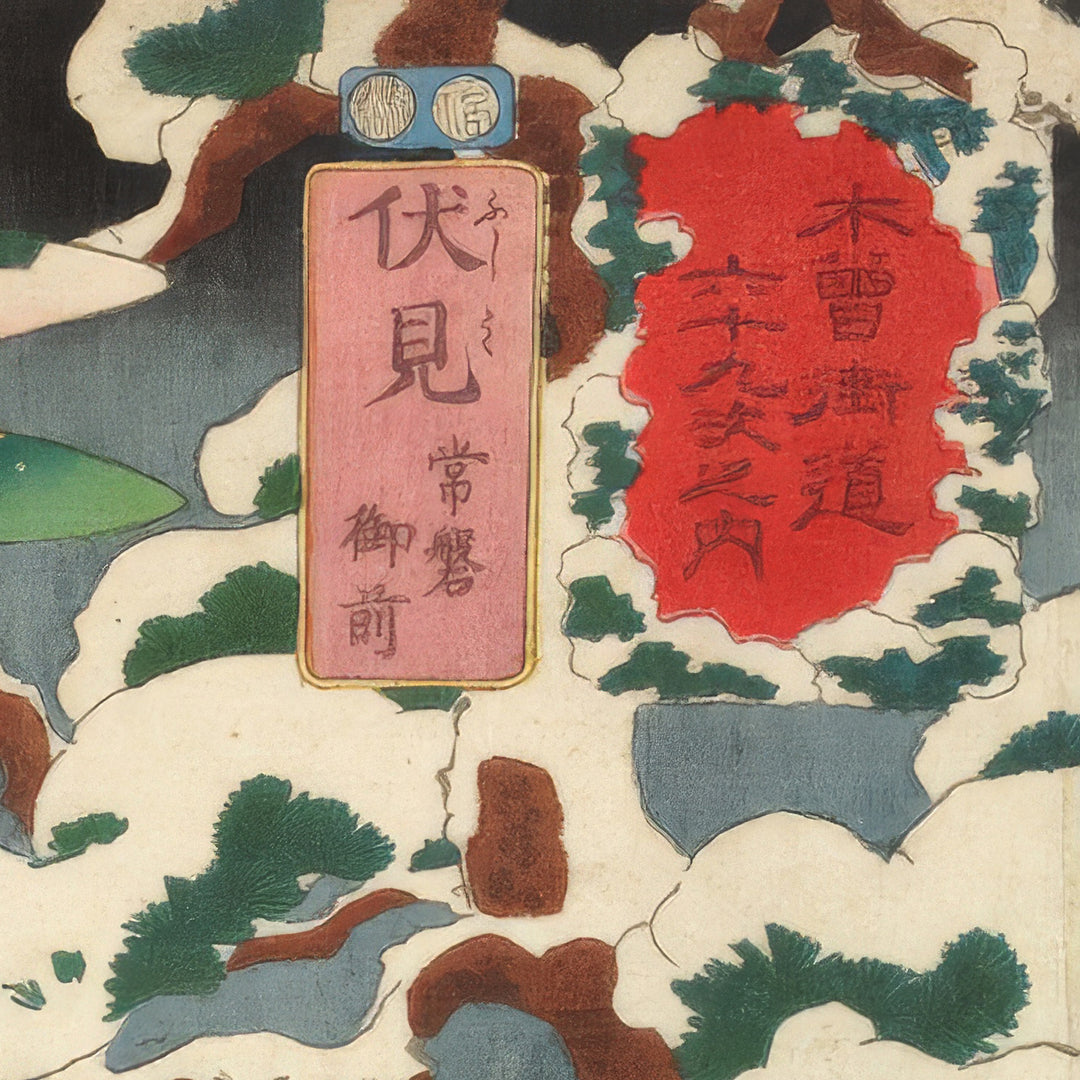 木曽街道
六十九次之内
ふし
伏見
常磐
御前